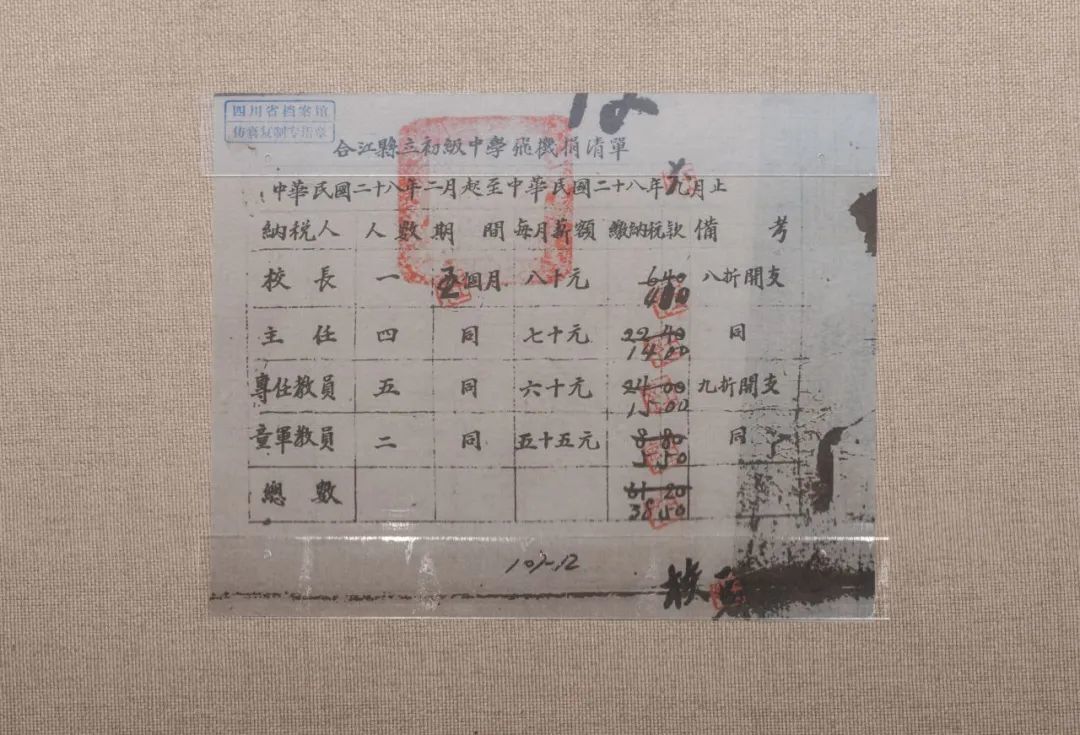 四川省档案馆
仿真复制专用章
合江縣立初級中學飛機捐清單
中華民國二十八年二月起至中華民國二十八年九月止
納税人 人數 期間 每月薪額 繳納税款 備考
校長 一 五個月 八十元 640 400 八折開支
主任 四 同 七十元 2240 1400 同
專任教員 五 同 六十元 2400 1500 九折開支
童軍教員 二 同 五十五元 880 550 同
總數 6120 3850